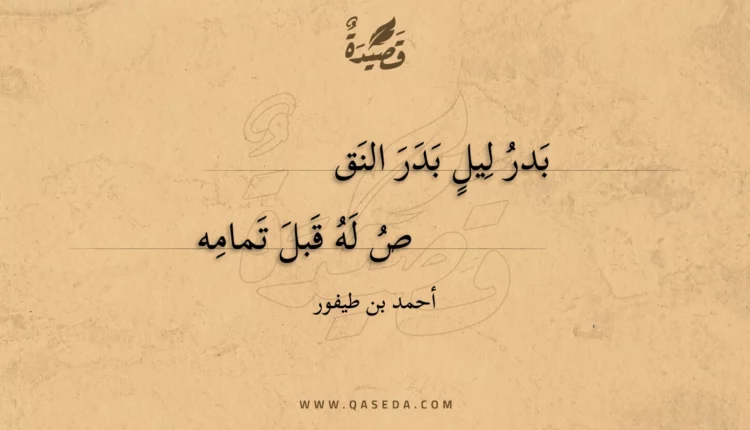 قَصِيْدَةٌ
بَدرُ لِيلٍ بَدَرَ النَق
صُ لَهُ قَبلَ تَمامِه
أحمد بن طيفور
WWW.QASEDA.COM